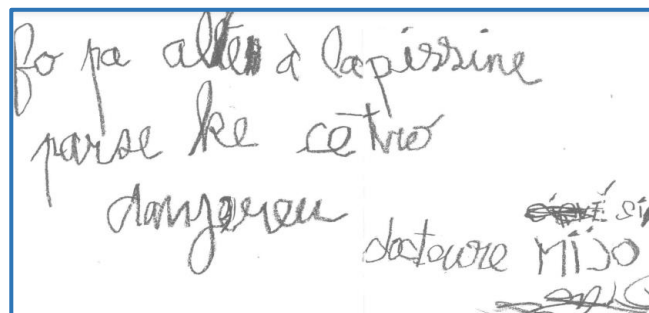 fo pa allé à lapissine
parse ke cétro
danjereu
si
docteure MiJO